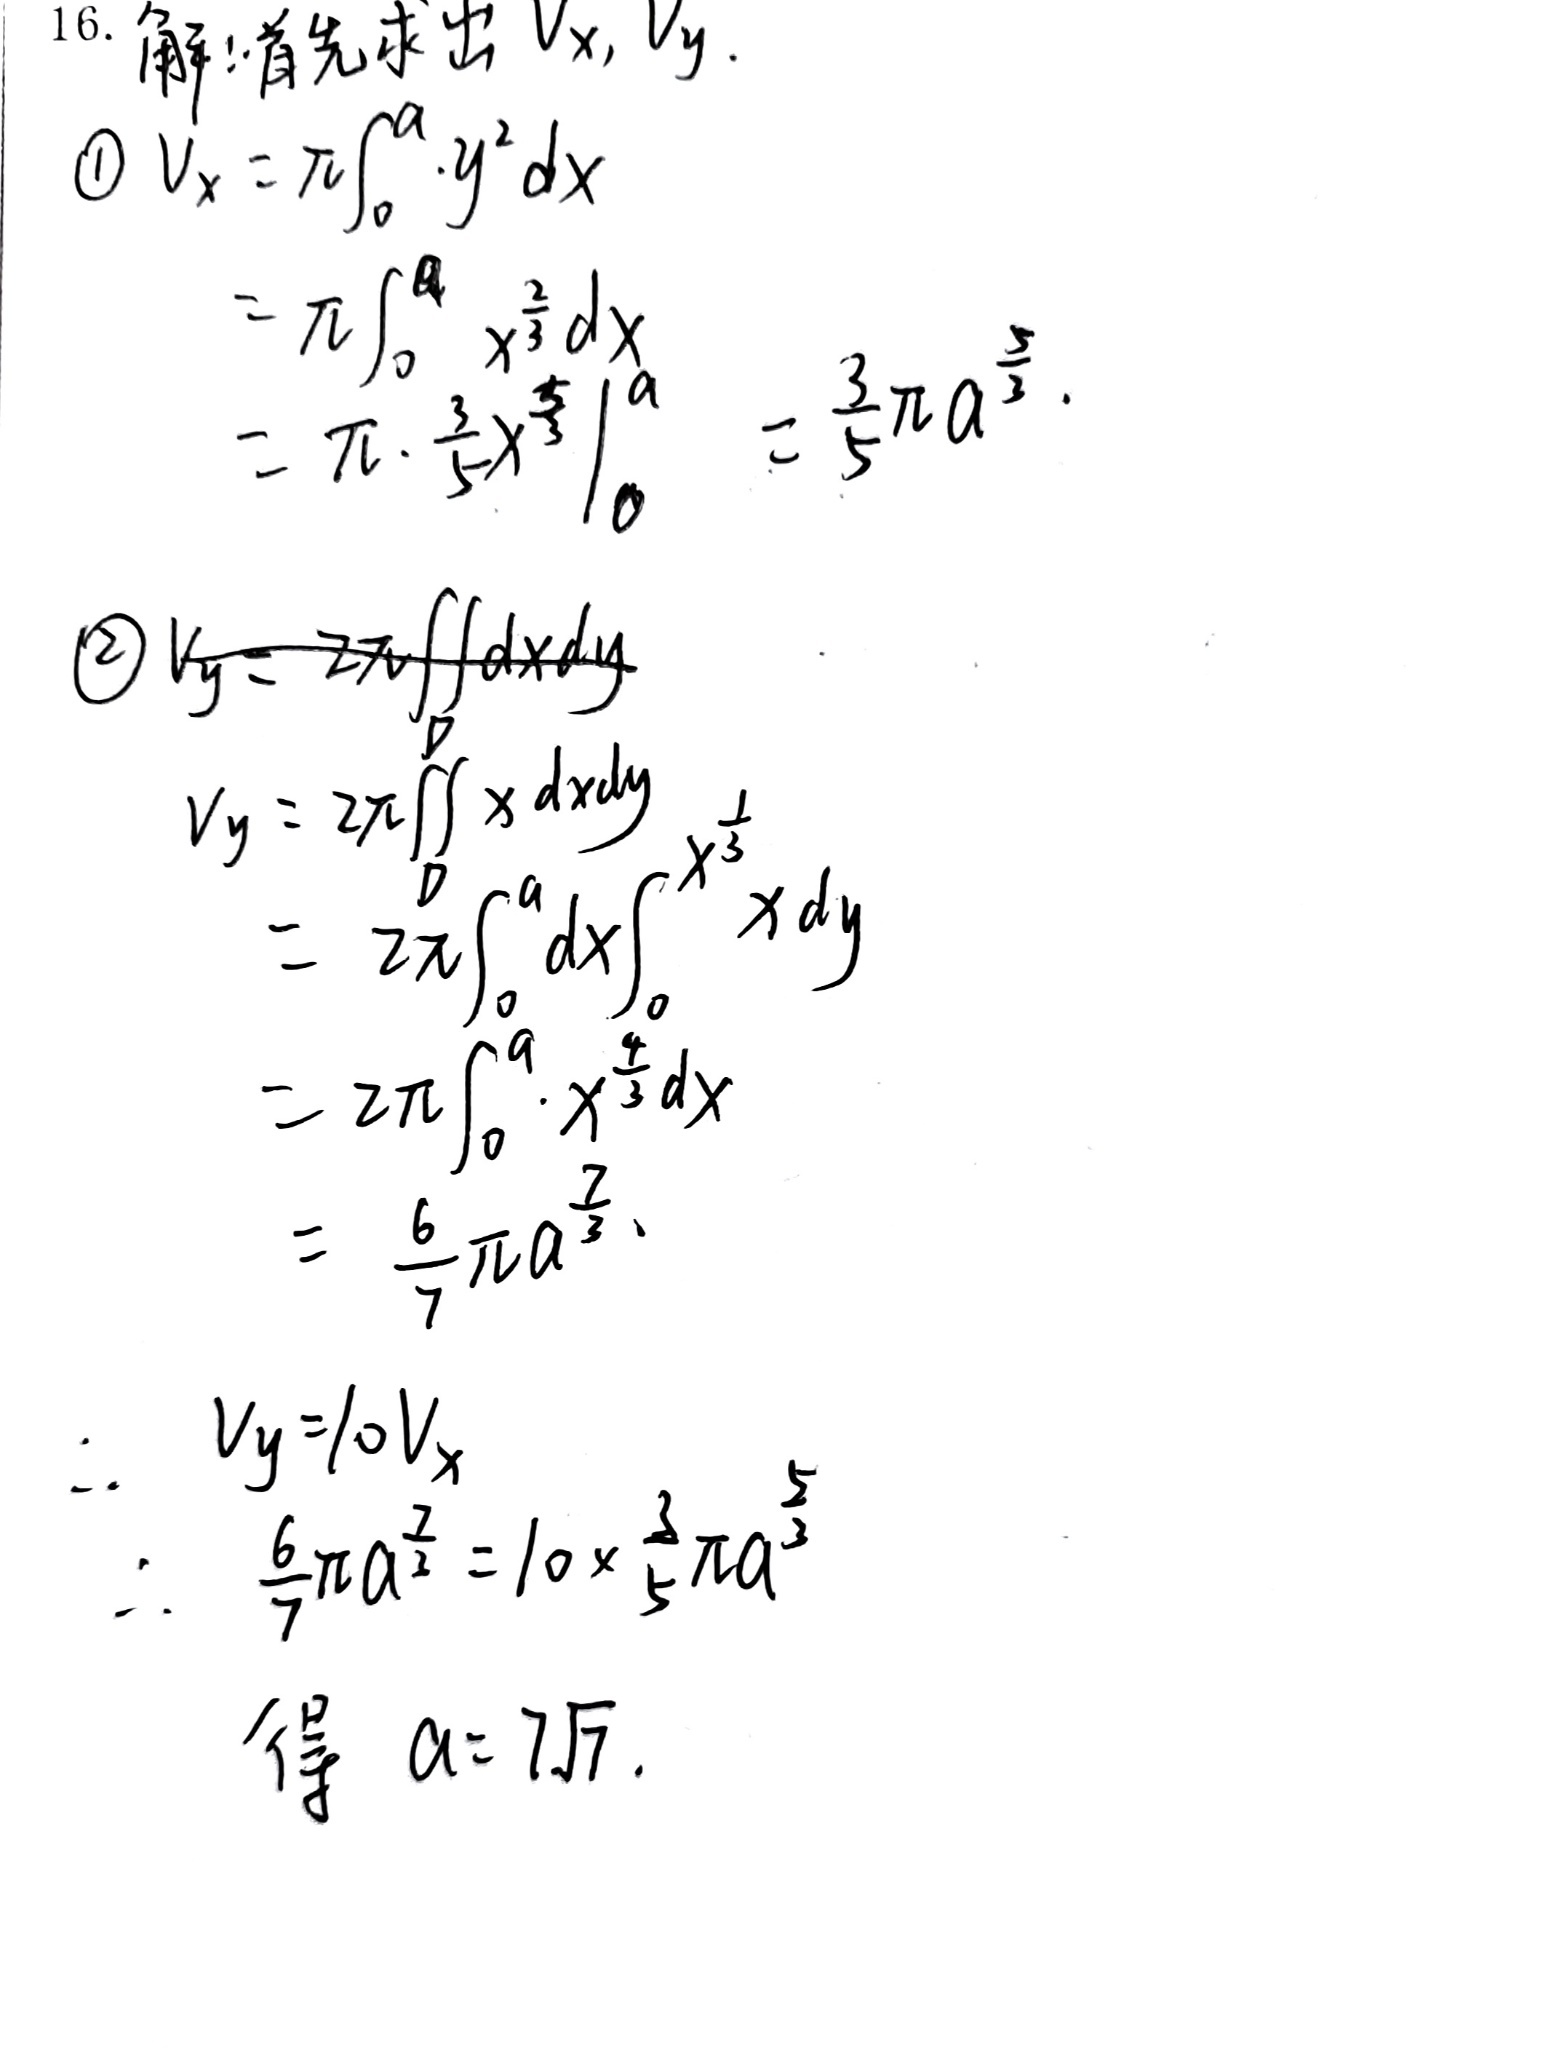 16. 解:首先求出 Vx, Vy.
① Vx = π∫₀ᵃ·y²dx
= π∫₀ᵃ x^(2/3) dx
= π·3/5 x^(5/3) |₀ᵃ = 3/5 πa^(5/3).
② Vy = 2π∬_D dxdy
Vy = 2π∬_D x dxdy
= 2π∫₀ᵃ dx∫₀^(x^(1/3)) x dy
= 2π∫₀ᵃ·x^(4/3) dx
= 6/7 πa^(7/3).
∴ Vy = 10Vx
∴ 6/7 πa^(7/3) = 10 × 3/5 πa^(5/3)
得 a = 7√7.